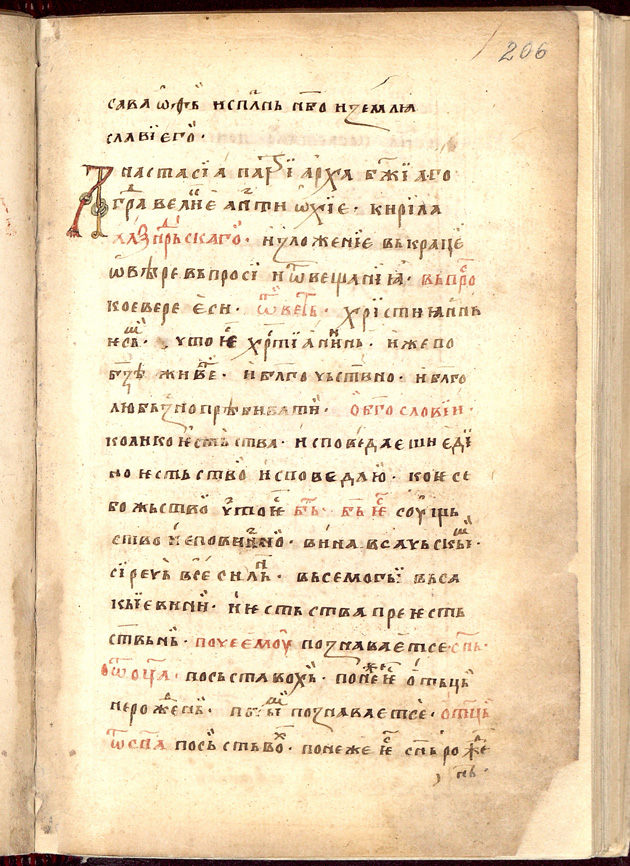 206
сава ѡѳь испль нб҃о и землꙗ
славі его ·
Анастасїа патрїарха бж҃їаго
града великіе антиѡхїе · кирїла
алеѯандрьскаго · изложенїе вькраце
ѡ вѣре вьпросі и ѿвещанїꙗ · вьпро
кое вере еси · ѿветь · хрїстиꙗнинь
есьмь · что ѥ хрⷭтїанинь · иже по
бз҃ѣ живе · и бл҃гочьствно · и благо
любьзно прѣбивати · о бг҃ословіи ·
колико ѥстьства · исповедаеши еді
но ѥстьство исповедаю · кое се
божьство что ѥ бг҃ь · бг҃ь ѥ сꙋщь
ство неповинно · вина всачьскыⷯ ·
сїречь все силь · вьсемогы вьса
кыѥ вини · и ѥстьства преѥсть
ствьнь · по чеемоу познаваетсе сн҃ь ·
о ѿ оц҃а · по сьставохь · понеже ѥ отьць
нерождень · по чьшо познаваетсе · от҃ць
ѿ сн҃а по сьствоⷯ · понеже ѥ сн҃ь рожде
нь ·